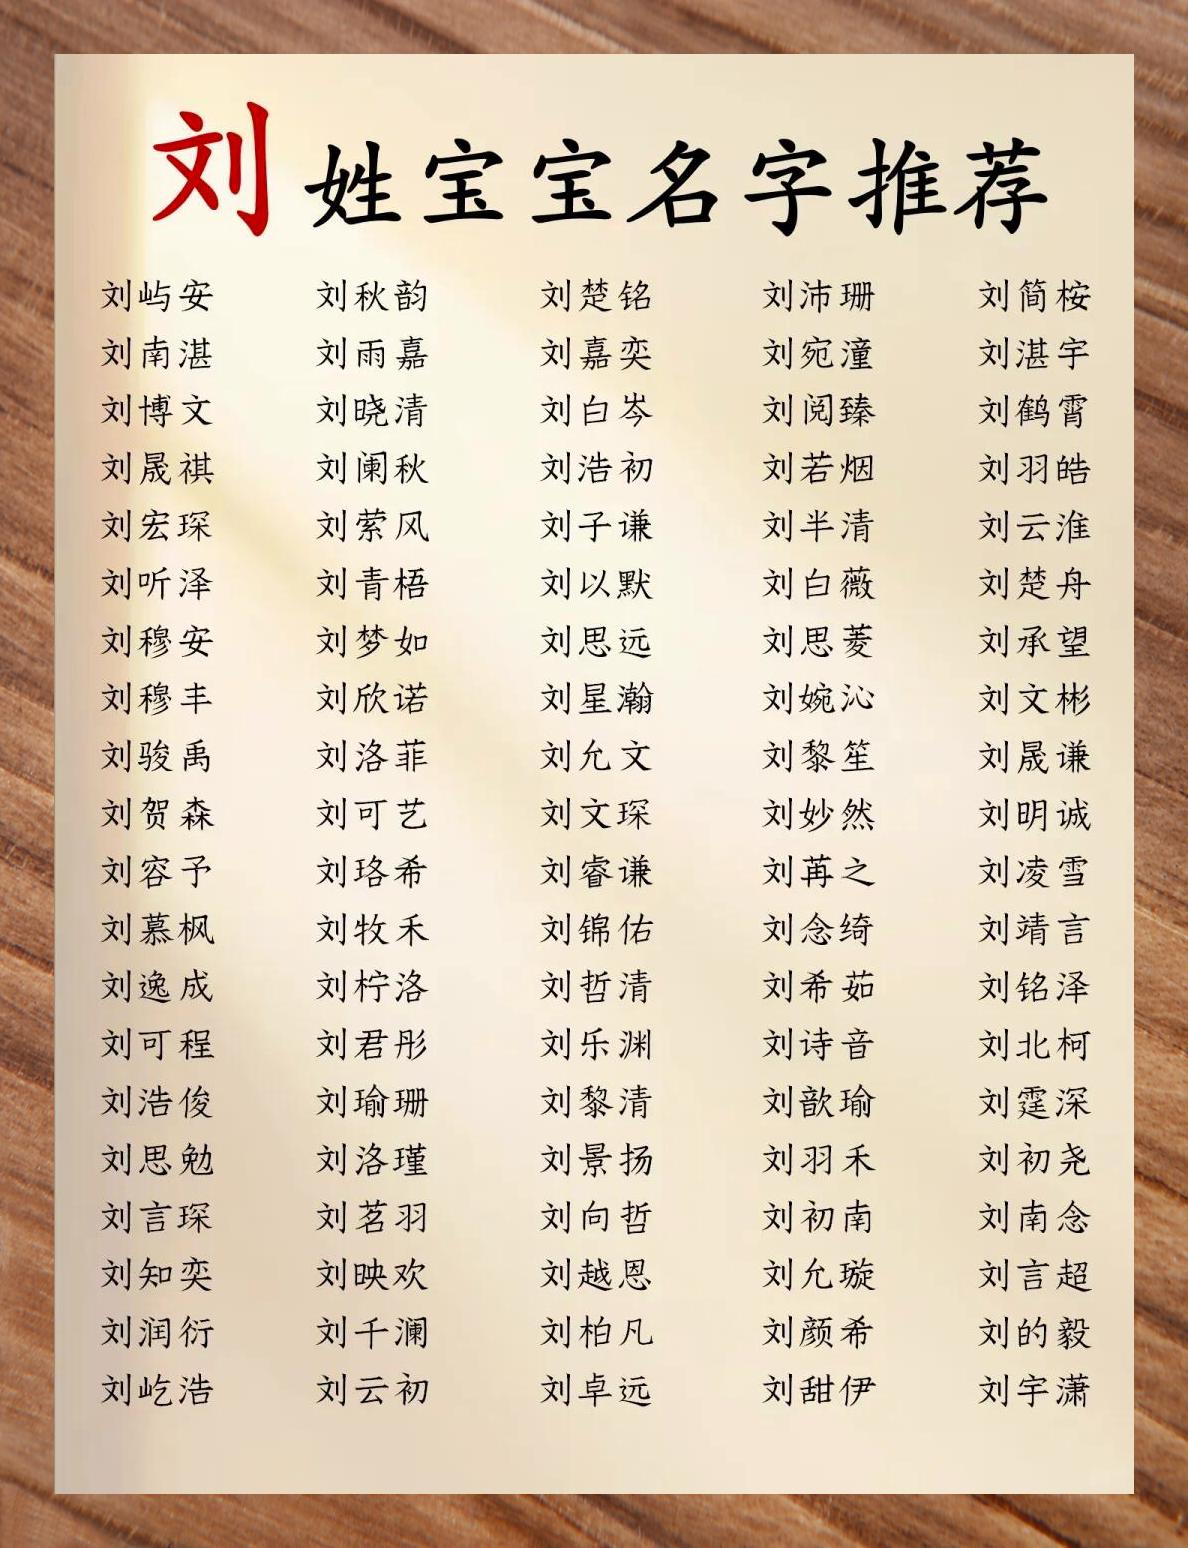 刘姓宝宝名字推荐
刘屿安 刘秋韵 刘楚铭 刘沛珊 刘简桉
刘南湛 刘雨嘉 刘嘉奕 刘宛潼 刘湛宇
刘博文 刘晓清 刘白岑 刘阅臻 刘鹤霄
刘晟祺 刘阑秋 刘浩初 刘若烟 刘羽皓
刘宏琛 刘萦风 刘子谦 刘半清 刘云淮
刘听泽 刘青梧 刘以默 刘白薇 刘楚舟
刘穆安 刘梦如 刘思远 刘思菱 刘承望
刘穆丰 刘欣诺 刘星瀚 刘婉沁 刘文彬
刘骏禹 刘洛菲 刘允文 刘黎笙 刘晟谦
刘贺森 刘可艺 刘文琛 刘妙然 刘明诚
刘容予 刘珞希 刘睿谦 刘苒之 刘凌雪
刘慕枫 刘牧禾 刘锦佑 刘念绮 刘靖言
刘逸成 刘柠洛 刘哲清 刘希茹 刘铭泽
刘可程 刘君彤 刘乐渊 刘诗音 刘北柯
刘浩俊 刘瑜珊 刘黎清 刘歆瑜 刘霆深
刘思勉 刘洛瑾 刘景扬 刘羽禾 刘初尧
刘言琛 刘茗羽 刘向哲 刘初南 刘南念
刘知奕 刘映欢 刘越恩 刘允璇 刘言超
刘润衍 刘千澜 刘柏凡 刘颜希 刘的毅
刘屹浩 刘云初 刘卓远 刘甜伊 刘宇潇